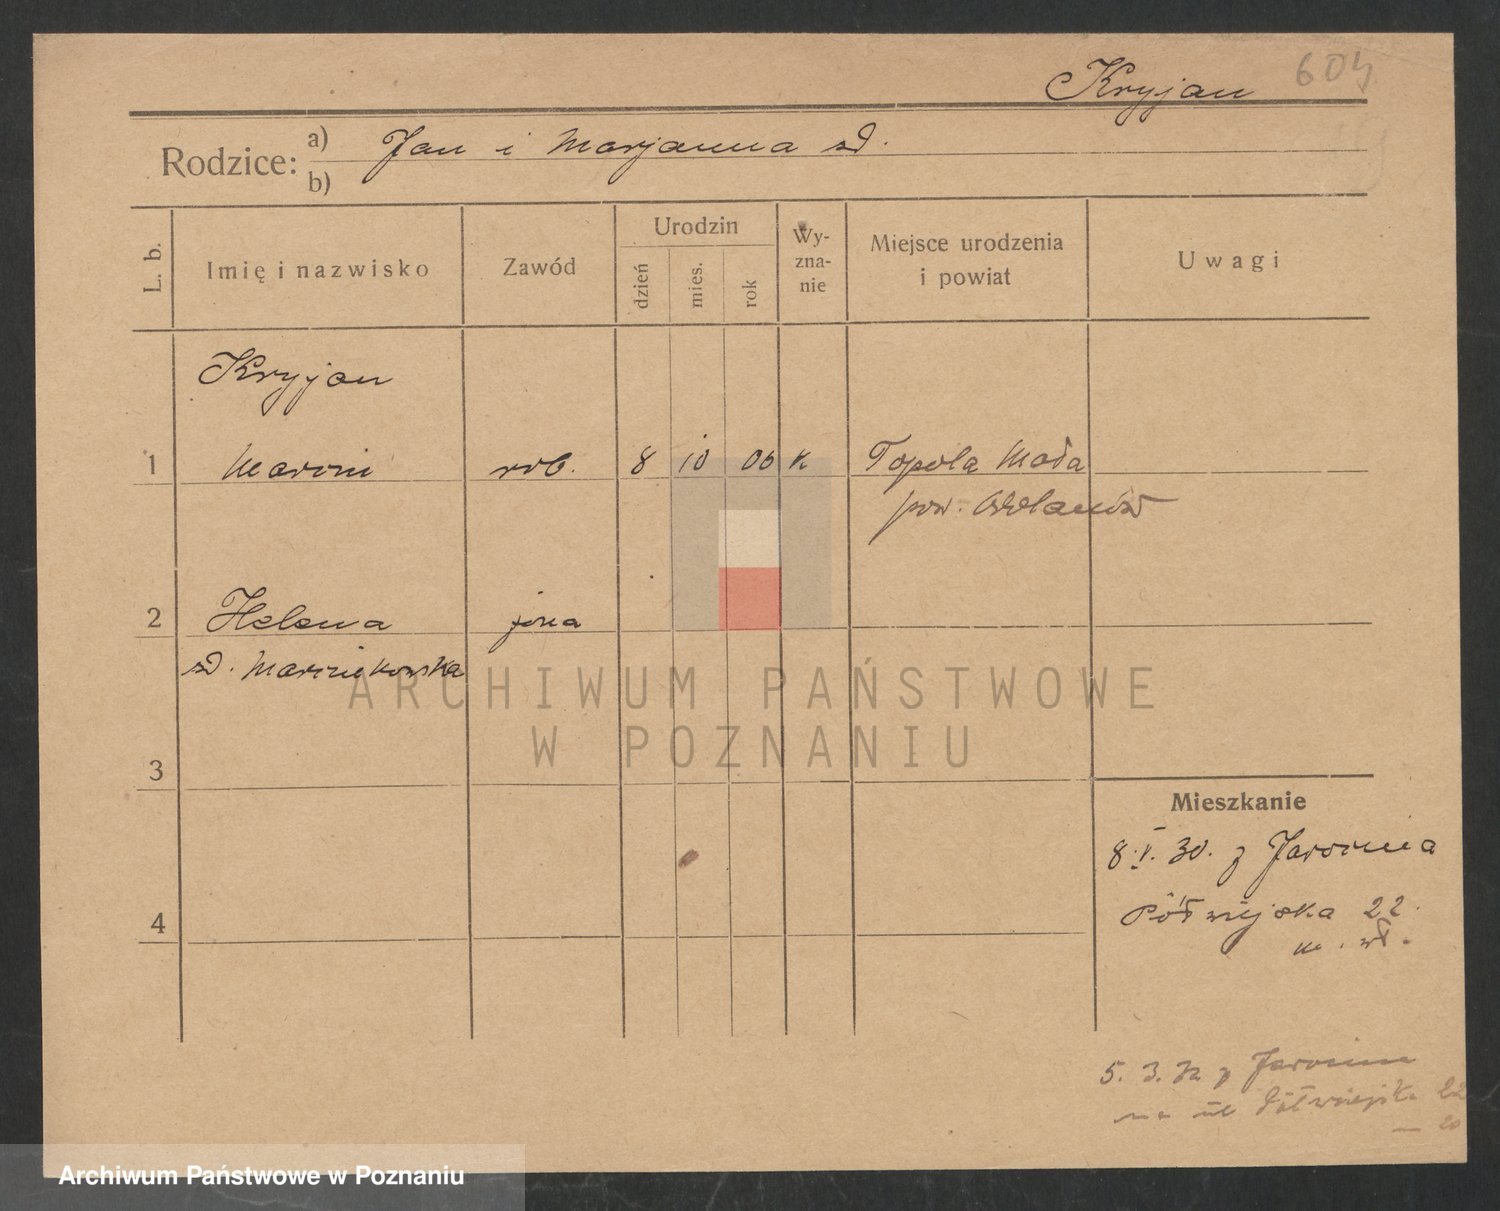 Kryjan 604
Rodzice: a) Jan i Marjanna zd.
b)
L. b.
Imię i nazwisko
Zawód
Urodzin
dzień
mies.
rok
Wy-
zna-
nie
Miejsce urodzenia
i powiat
Uwagi
Kryjan
1 Marcin rob. 8 10 06 k Topola Mała
pow. Odolanów
2 Helena żona
zd. Marcinikowska
3
4
Mieszkanie
8.V.30. z Jarocina
Półwiejska 22.
m. wł.
5. 3. 32 z Jarocina
na ul Półwiejska 22
ARCHIWUM PAŃSTWOWE
W POZNANIU
Archiwum Państwowe w Poznaniu